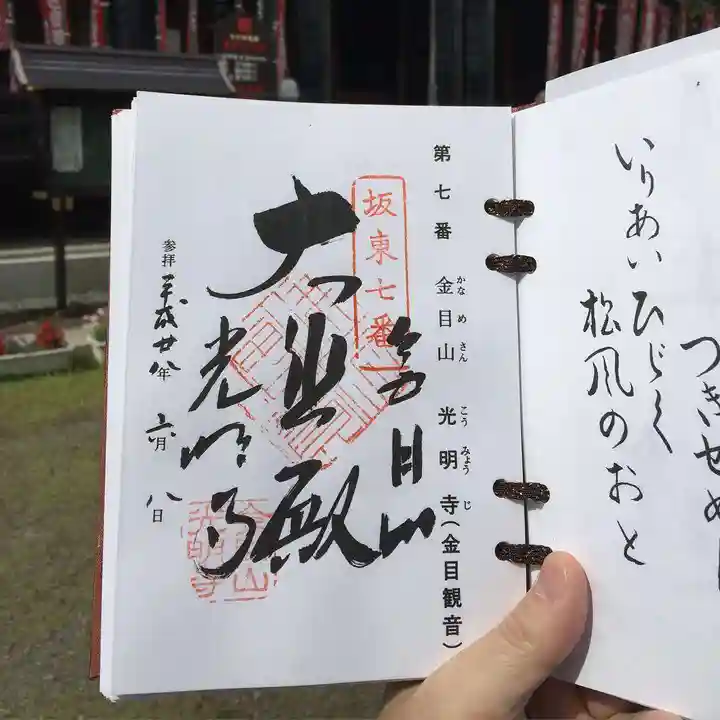 つきせぬ
いりあいひゞく
松風のおと
第七番 金目山 光明寺(金目観音)
かな め さん こう みょう じ
坂東七番
金目山
大悲殿
光明寺
参拝 平成廿八年 六月 八日
金目山
光明寺